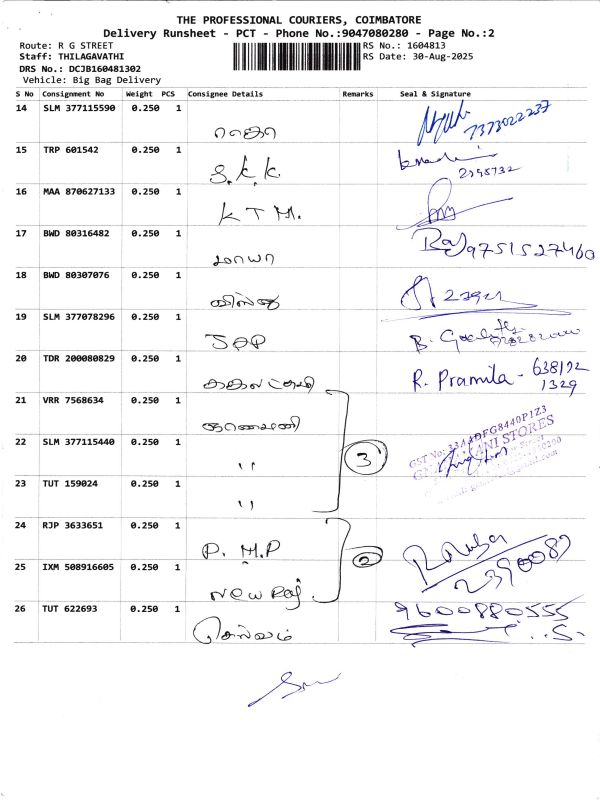 THE PROFESSIONAL COURIERS, COIMBATORE
Delivery Runsheet - PCT - Phone No.:9047080280 - Page No.:2
Route: R G STREET
RS No.: 1604813
Staff: THILAGAVATHI
RS Date: 30-Aug-2025
DRS No.: DCJB160481302
Vehicle: Big Bag Delivery
S No Consignment No Weight PCS Consignee Details Remarks Seal & Signature
14 SLM 377115590 0.250 1
7373022237
15 TRP 601542 0.250 1
S.K.K.
16 MAA 870627133 0.250 1
KTM.
17 BWD 80316482 0.250 1
மாயா
Raj 9751527460
18 BWD 80307076 0.250 1
19 SLM 377078296 1 0.250
JPP
20 TDR 200080829 0.250 1
R. Pramila - 638192
1329
21 VRR 7568634 0.250 1
22 SLM 377115440 0.250 1
" 3
GST No: 33AADFG8440P1Z3
23 TUT 159024 0.250 1
"
24 RJP 3633651 0.250 1
P. M.P 2
25 IXM 508916605 0.250 1
New Raj. 2390087
26 TUT 622693 0.250 1
செல்வம் 9600880555